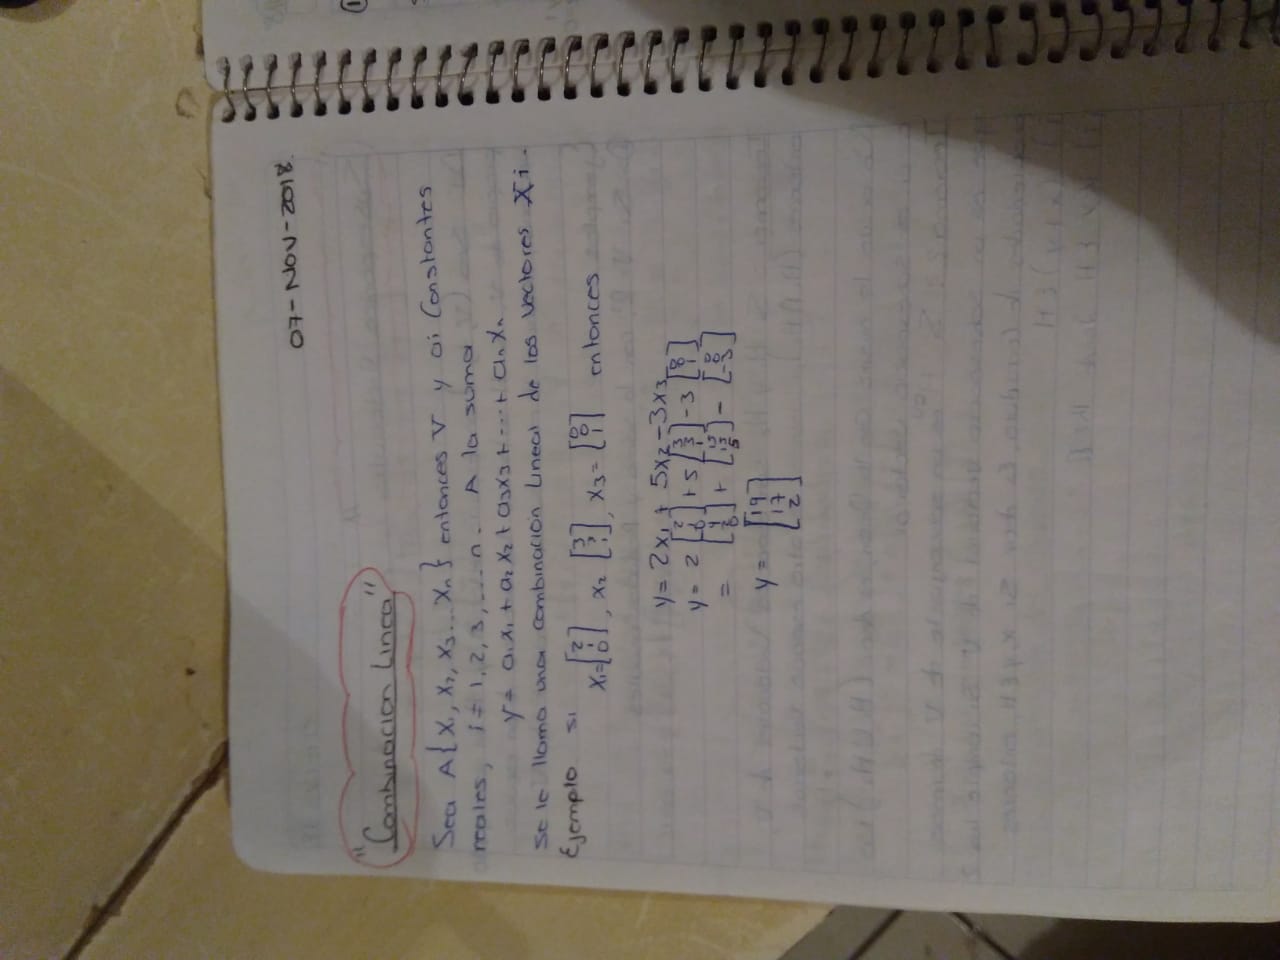 07-NOV-2018.
"Combinacion Linea"
Sea A{X₁, X₂, X₃... Xₙ} entonces V y ai Constantes
reales, i = 1, 2, 3, ... n. A la suma
y = a₁x₁ + a₂x₂ + a₃x₃ + ... + aₙxₙ
Se le llama una combinación Lineal de los vectores Xi.
Ejemplo si
X₁ = [2 1 0], X₂ [3 3 1], X₃ = [0 0 1] entonces
y = 2x₁ + 5x₂ - 3x₃
y = 2 [2 1 0] + 5 [3 3 1] - 3 [0 0 1]
= [4 2 0] + [15 15 5] - [0 0 -3]
y = [19 17 2]